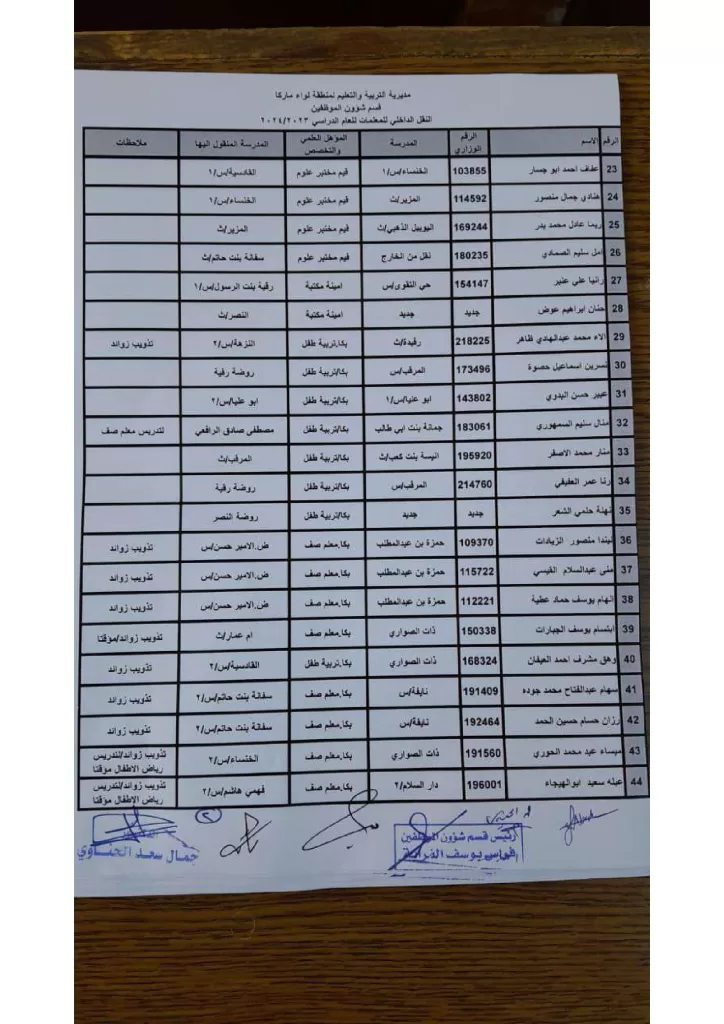 مديرية التربية والتعليم لمنطقة لواء ماركا
قسم شؤون الموظفين
النقل الداخلي للمعلمات للعام الدراسي ٢٠٢٤/٢٠٢٣
الرقم الاسم الرقم الوزاري المدرسة المؤهل العلمي والتخصص المدرسة المنقول اليها ملاحظات
23 عفاف احمد ابو جسار 103855 الخنساء/س/١ قيم مختبر علوم القادسية/س/١
24 هنادي جمال منصور 114592 المزير/ث قيم مختبر علوم الخنساء/س/١
25 ريما عادل محمد بدر 169244 اليوبيل الذهبي/ث قيم مختبر علوم المزير/ث
26 امل سليم الصمادي 180235 نقل من الخارج قيم مختبر علوم سفانة بنت حاتم/ث
27 رانيا علي عنبر 154147 حي التقوى/س امينة مكتبة رقية بنت الرسول/س/١
28 حنان ابراهيم عوض جديد جديد امينة مكتبة النصر/ث
29 الاء محمد عبدالهادي ظاهر 218225 رفيدة/ث بكا.تربية طفل النزهة/س/٢ تذويب زوائد
30 نسرين اسماعيل حصوة 173496 المرقب/س بكا/تربية طفل روضة رقية
31 عبير حسن البدوي 143802 ابو عليا/س/١ بكا/تربية طفل ابو عليا/س/٢
32 منال سليم السمهوري 183061 جمانة بنت ابي طالب بكا/تربية طفل مصطفى صادق الرافعي لتدريس معلم صف
33 منار محمد الاصفر 195920 انيسة بنت كعب/ث بكا/تربية طفل المرقب/ث
34 رنا عمر العفيفي 214760 المرقب/س بكا/تربية طفل روضة رقية
35 نهلة حلمي الشعر جديد جديد بكا/تربية طفل روضة النصر
36 ليندا منصور الزيادات 109370 حمزة بن عبدالمطلب بكا.معلم صف ض.الامير حسن/س تذويب زوائد
37 منى عبدالسلام القيسي 115722 حمزة بن عبدالمطلب بكا.معلم صف ض.الامير حسن/س تذويب زوائد
38 الهام يوسف حماد عطية 112221 حمزة بن عبدالمطلب بكا.معلم صف ض.الامير حسن/س تذويب زوائد
39 ابتسام يوسف الجبارات 150338 ذات الصواري بكا.معلم صف ام عمار/ث تذويب زوائد/مؤقتا
40 وهق مشرف احمد العيفان 168324 ذات الصواري بكا.تربية طفل القادسية/س/٢ تذويب زوائد
41 سهام عبدالفتاح محمد جوده 191409 نايفة/س بكا.معلم صف سفانة بنت حاتم/س/٢ تذويب زوائد
42 رزان حسام حسين الحمد 192464 نايفة/س بكا.معلم صف سفانة بنت حاتم/س/٢ تذويب زوائد
43 ميساء عيد محمد الحوري 191560 ذات الصواري بكا.معلم صف الخنساء/س/٢ تذويب زوائد/لتدريس رياض الاطفال مؤقتا
44 عبله سعيد ابوالهيجاء 196001 دار السلام/٢ بكا.معلم صف فهمي هاشم/س/٢ تذويب زوائد/لتدريس رياض الاطفال مؤقتا
٢
رئيس قسم شؤون الموظفين
جمال سعد